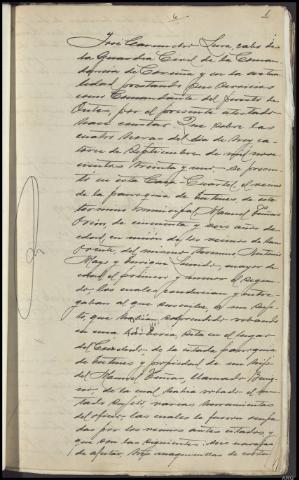 1
José Carnicher Lura, cabo de
la Guardia Civil de la Coman-
dancia de Coruña y en la actua-
lidad prestando sus servicios
como Comandante del puesto de
Ortes, por el presente atestado
hace constar: Que sobre las
cuatro horas del día de hoy ca-
torce de Septiembre de mil nove-
cientos treinta y uno, se presentó
en esta Casa-Cuartel el vecino
de la parroquia de de este
término municipal Manuel
de cincuenta y seis años de
edad, en unión de los vecinos de
del mismo término, Antonio
Mayo y Enrique mayor de
edad el primero y menor el segun-
do, los cuales conducían y entre-
gaban al que suscribe, a un suje-
to, que habían sorprendido robando
en una sita en el lugar
del de la citada parroquia
de y propiedad de un hijo
del Manuel llamado
de la cual había robado el ci-
tado sujeto, varias herramientas
del oficio, las cuales le fueron ocupa-
das por los vecinos antes citados y
que son las siguientes: dos navajas
de afeitar, tres maquinillas de cortar
ARG